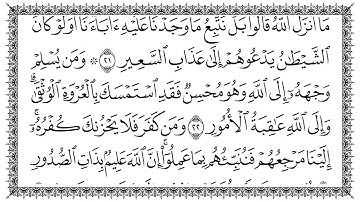 مَآ أَنزَلَ ٱللَّهُ قَالُوا۟ بَلْ نَتَّبِعُ مَا وَجَدْنَا عَلَيْهِ ءَابَآءَنَآ أَوَلَوْ كَانَ
ٱلشَّيْطَٰنُ يَدْعُوهُمْ إِلَىٰ عَذَابِ ٱلسَّعِيرِ ٢١ ۞ وَمَن يُسْلِمْ
وَجْهَهُۥٓ إِلَى ٱللَّهِ وَهُوَ مُحْسِنٌ فَقَدِ ٱسْتَمْسَكَ بِٱلْعُرْوَةِ ٱلْوُثْقَىٰۗ
وَإِلَى ٱللَّهِ عَٰقِبَةُ ٱلْأُمُورِ ٢٢ وَمَن كَفَرَ فَلَا يَحْزُنكَ كُفْرُهُۥٓۚ
إِلَيْنَا مَرْجِعُهُمْ فَنُنَبِّئُهُم بِمَا عَمِلُوٓا۟ۚ إِنَّ ٱللَّهَ عَلِيمٌۢ بِذَاتِ ٱلصُّدُورِ